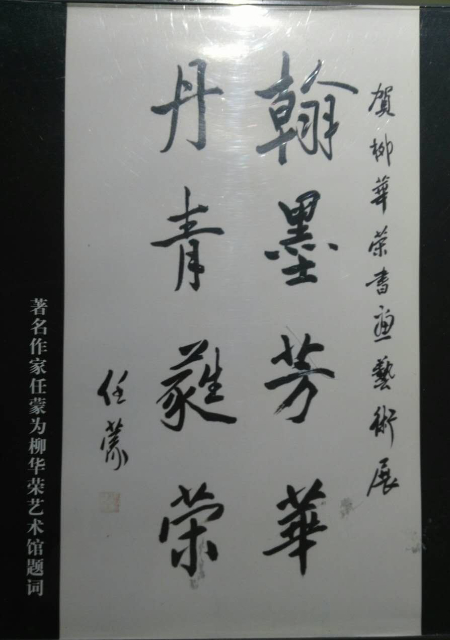 賀柳華荣書画藝術展
翰墨芳華
丹青蕤荣
任蒙
著名作家任蒙为柳华荣艺术馆题词